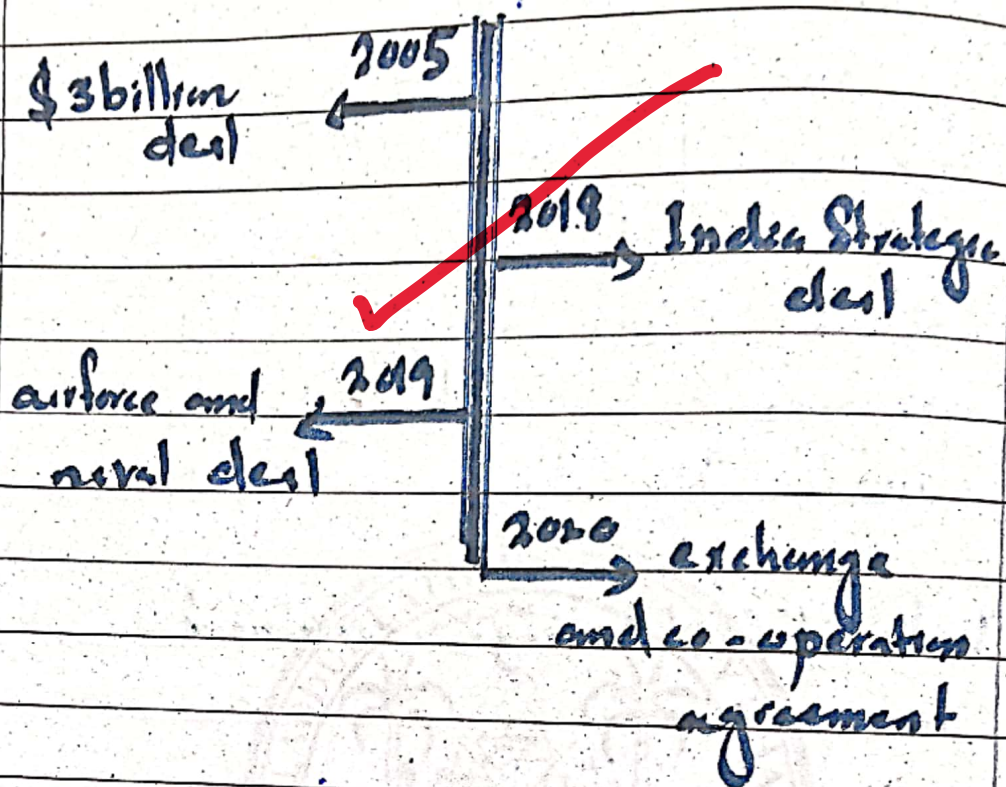 2005
$3billion
deal
2018
India Strategic
deal
2019
airforce and
naval deal
2020
exchange
and co-operation
agreement